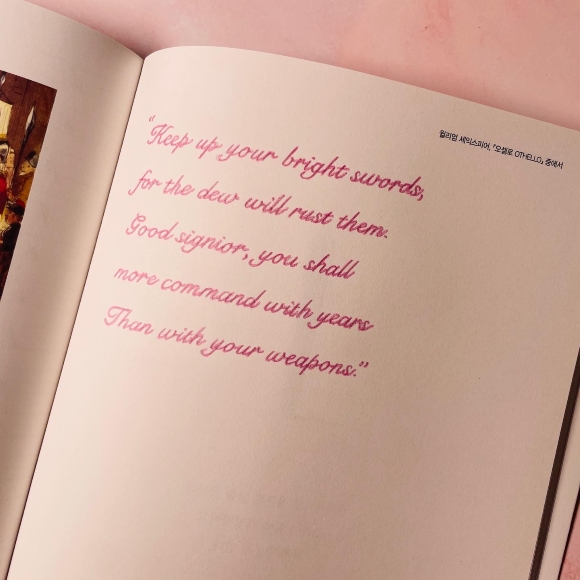 윌리엄 셰익스피어, 『오셀로 OTHELLO』 중에서
“Keep up your bright swords,
for the dew will rust them.
Good signior, you shall
more command with years
Than with your weapons.”